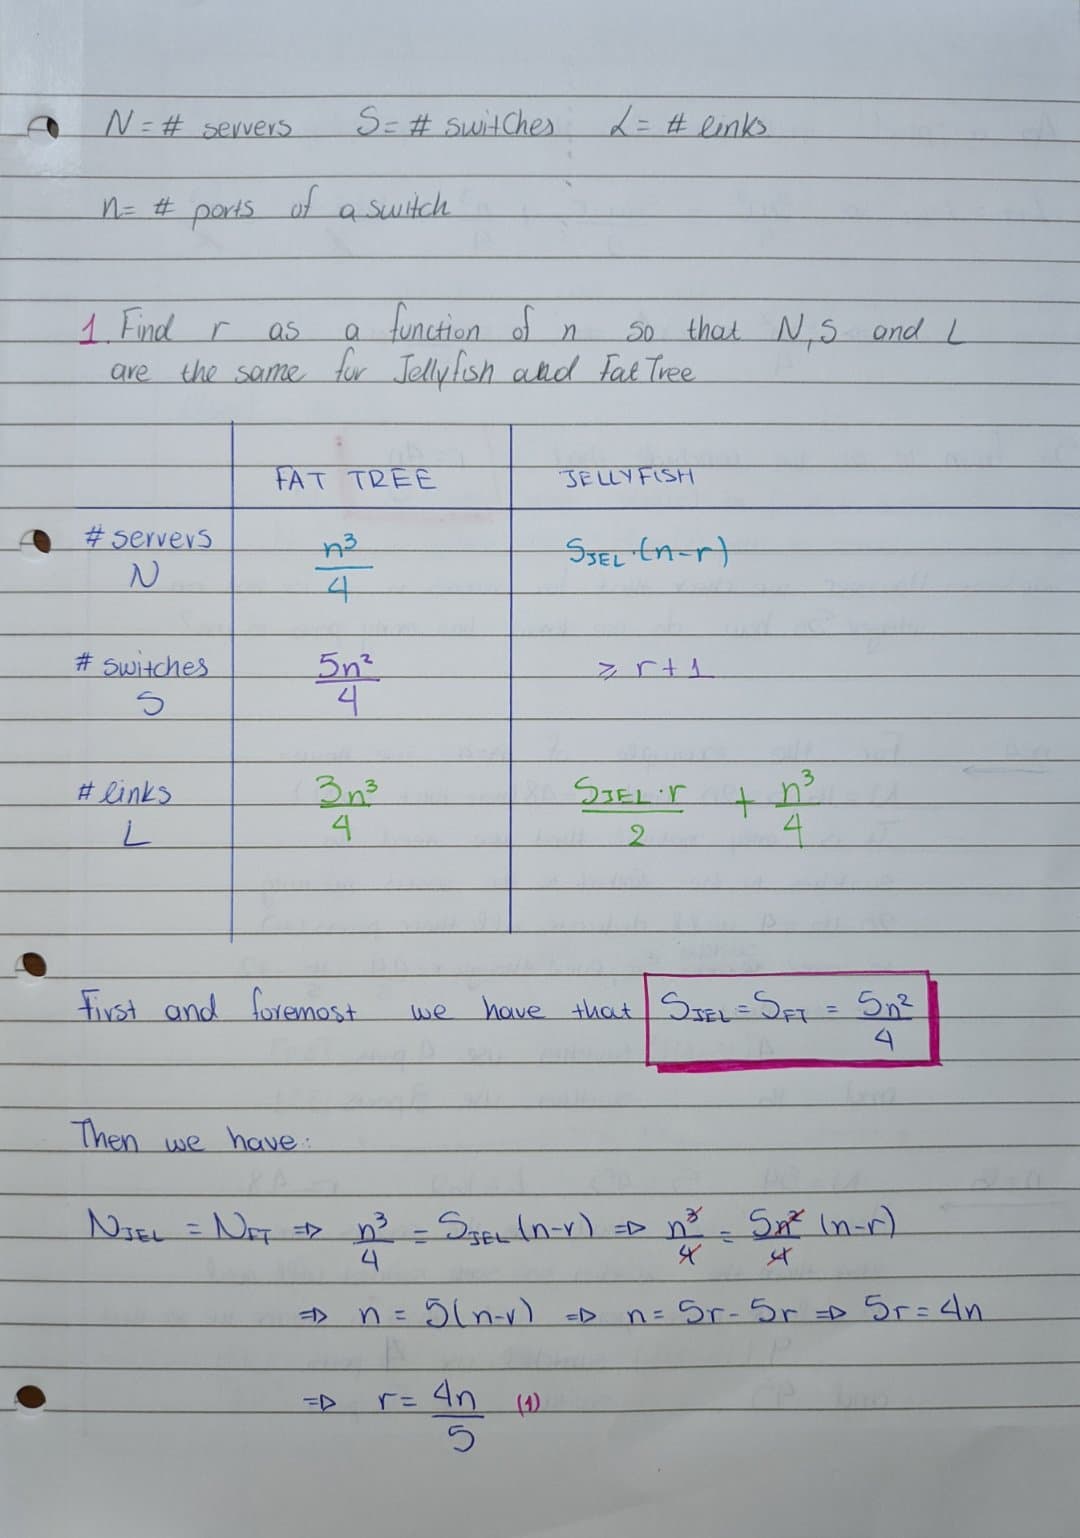 N = # servers S = # switches L = # links
n = # ports of a switch
1. Find r as a function of n so that N, S and L
are the same for Jellyfish and Fat Tree
FAT TREE JELLYFISH
# servers N n³/4 S_JEL · (n-r)
# switches S 5n²/4 ⩾ r+1
# links L 3n³/4 S_JEL · r/2 + n³/4
First and foremost we have that S_JEL = S_FT = 5n²/4
Then we have:
N_JEL = N_FT => n³/4 = S_JEL (n-r) => n³/4 = 5n²/4 (n-r)
=> n = 5(n-r) => n = 5r - 5r => 5r = 4n
=> r = 4n/5 (1)